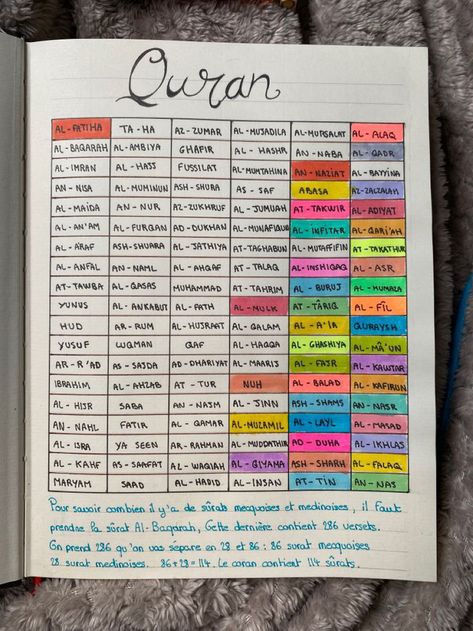 Quran
AL-FATIHA TA-HA AZ-ZUMAR AL-MUJADILA AL-MURSALAT AL-ALAQ
AL-BAQARAH AL-AMBIYA GHAFIR AL-HASHR AN-NABA AL-QADR
AL-IMRAN AL-HAJJ FUSSILAT AL-MUMTAHINA AN-NAZIAT AL-BAYYINA
AN-NISA AL-MUMINUN ASH-SHURA AS-SAF ABASA AZ-ZALZALAH
AL-MAIDA AN-NUR AZ-ZUKHRUF AL-JUMUAH AT-TAKWIR AL-ADIYAT
AL-AN'AM AL-FURQAN AD-DUKHAN AL-MUNAFIQUN AL-INFITAR AL-QARI'AH
AL-ARAF ASH-SHUARA AL-JATHIYA AT-TAGHABUN AL-MUTAFFIFIN AT-TAKATHUR
AL-ANFAL AN-NAML AL-AHQAF AT-TALAQ AL-INSHIQAQ AL-ASR
AT-TAWBA AL-QASAS MUHAMMAD AT-TAHRIM AL-BURUJ AL-HUMAZA
YUNUS AL-ANKABUT AL-FATH AL-MULK AT-TÂRIQ AL-FÎL
HUD AR-RUM AL-HUJRAAT AL-QALAM AL-A'LA QURAYSH
YUSUF LUQMAN QAF AL-HAQQA AL-GHASHIYA AL-MÂ'UN
AR-R'AD AS-SAJDA AD-DHARIYAT AL-MAARIJ AL-FAJR AL-KAWTAR
IBRAHIM AL-AHZAB AT-TUR NUH AL-BALAD AL-KAFIRUN
AL-HIJR SABA AN-NAJM AL-JINN ASH-SHAMS AN-NASR
AN-NAHL FATIR AL-QAMAR AL-MUZAMIL AL-LAYL AL-MASAD
AL-ISRA YA SEEN AR-RAHMAN AL-MUDDATHIR AD-DUHA AL-IKHLAS
AL-KAHF AS-SAAFAT AL-WAQIAH AL-QIYAMA ASH-SHARH AL-FALAQ
MARYAM SAAD AL-HADID AL-INSAN AT-TIN AN-NAS
Pour savoir combien il y'a de sûrats mecquoises et medinoises, il faut
prendre la sûrat Al-Baqarah, Cette dernière contient 286 versets.
On prend 286 qu'on vas séparé en 28 et 86 : 86 surat mecquoises
28 surat medinoises. 86+28=114. Le coran contient 114 sûrats.